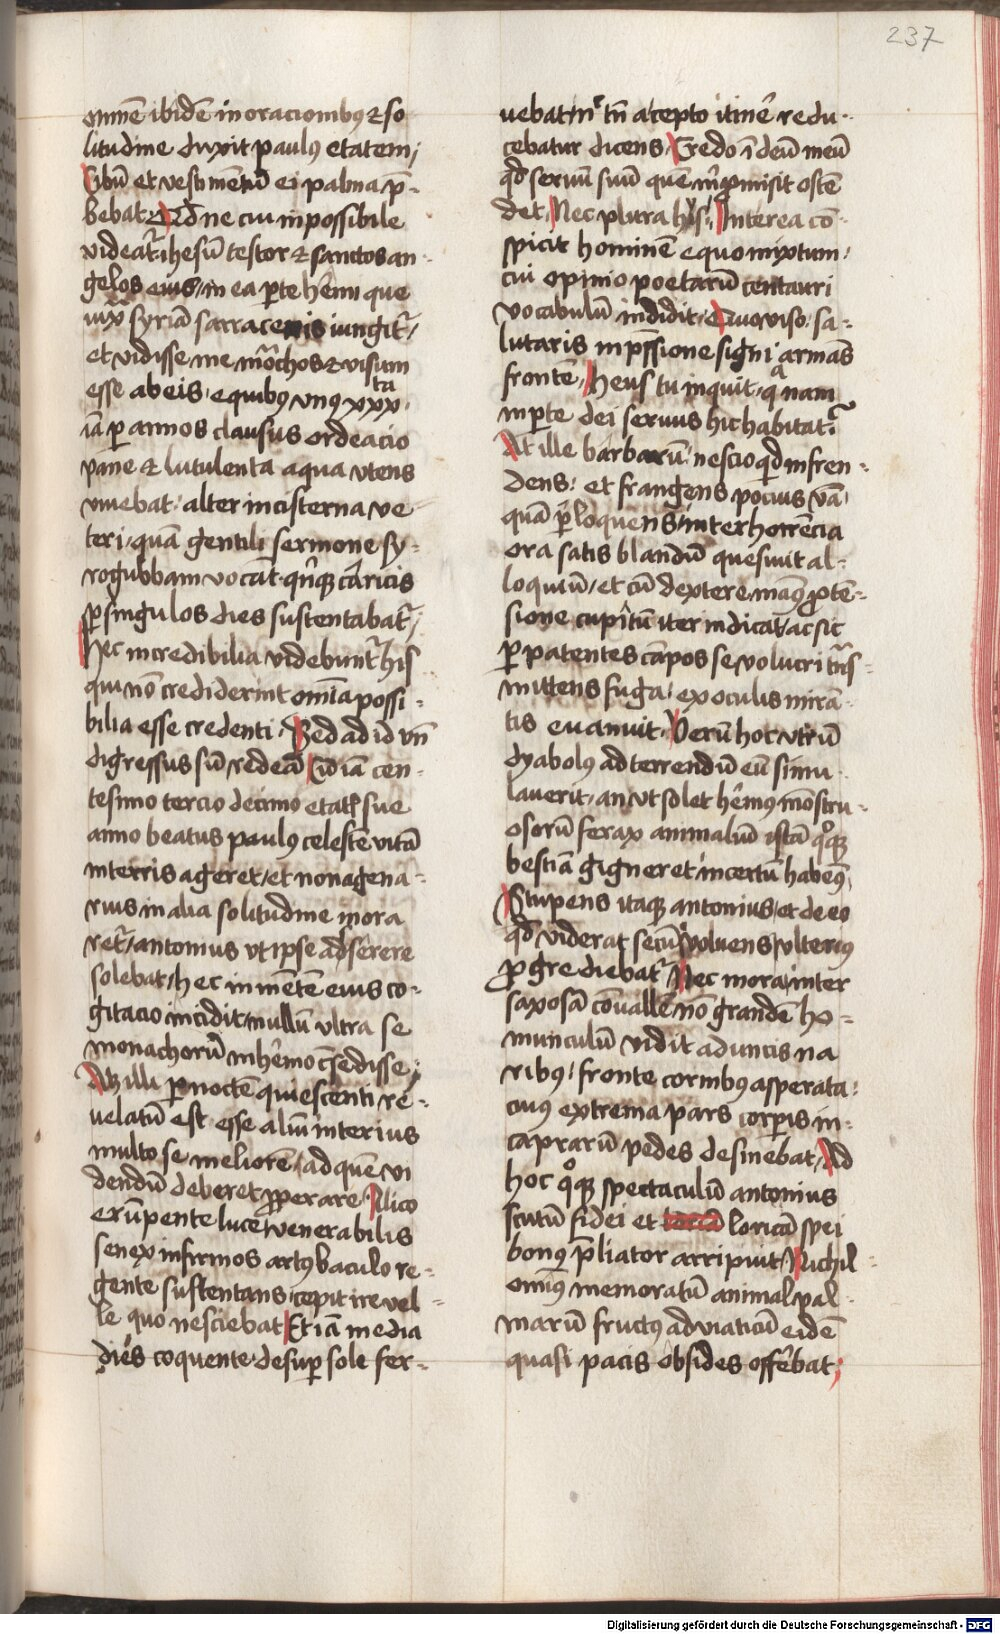 237
om̅ē ibidē in oracionibꝯ ⁊ so
litudine duxit paulꝯ etatem/
Cibū et vestimētū ei palma p̄-
bebat Qd̄ ne cui inpossibile
videat᷑ ihesū testor ⁊ sanctos an-
gelos eius/ in ea ꝑte h̄emi que
iux̄ syriā sarracenis iungit᷑/
et vidisse me mōchos ⁊ visum
esse ab eis· equibꝯ vnꝯ xxx ta
iā ꝑ annos clausus ordeacio
pane ⁊ lutulenta aqua vtens
viuebat· alter in cisterna ve
teri· quā gentili sermone sy-
rogubbam vocāt· qn̄qꝫ cāricis
ꝑ singulos dies sustentabat᷑/
Hec incredibilia videbunt᷑ his
qui nō crediderint omīa possi-
bilia esse credenti· Sed ad id vn̄
digressus sū redeā Cū iā cen-
tesimo tercio decimo etatꝭ sue
anno beatus paulꝯ celestē vitā
in terris ageret/ et nonagena-
rius in alia solitudine mora
ret᷑/ antonius vt ipse adserere
solebat/ hec in mētē eius co-
gitacio incidit/ nullū vltra se
monachorū in h̄emo cōsedisse·
Atqꝫ illi ꝑ noctē quiescenti re-
uelatū est· esse aliū interius
multo se meliorē/ ad quē vi
dendū deberet ꝓperare/ Ilico
erūpente luce/ venerabilis
senex infirmos artꝯ baculo re-
gente sustentans/ cepit ire vel-
le quo nesciebat Et iā media
dies coquente desuꝑ sole fer-
uebat/ nͨ tn̄ a cepto itin̄e redu-
cebatur dicens· Credo ī deū meū
qd̄ seruū suū quē mͥ ꝓmisit ostē
det· Nec plura hͥs/ Interea cō-
spicit hominē equo mixtum/
cui opinio poetarū centauri
vocabulū indidit· Quo viso· sa-
lutaris inp̄ssione signi armās
frontē/ Heus tu inquit· qͣ nam
in ꝑte dei seruus hic habitat᷑·
At ille barbarū nescio qd̄ infren-
dens/ et frangens pocius v̄ā
quā ꝓloquens/ inter horrēcia
ora satis blandū quesiuit al-
loquiū/ et cū dextere manꝯ ꝓtē-
sione cupitū iter indicat/ ac sic
ꝑ patentes cāpos se volucri tn̄s-
mittens fuga/ ex oculis mirā-
tis euanuit· Verū hoc vtrū
dyabolꝯ ad terrendū eū simu
lauerit/ an vt solet h̄emꝯ mōstru-
osorū ferax animaliū istā qͦqꝫ
bestiā gigneret/ incertū habemꝯ·
Stupens itaqꝫ antonius/ et de eo
qd̄ viderat secū voluens/ vlterius
ꝓgrediebat᷑ Nec mora/ inter
saxosā cōuallē nō grandē ho-
munculū vidit aduncis na
ribꝯ/ fronte cornibꝯ asperata·
cuiꝯ extrema pars corꝑis in-
caprarū pedes desinebat/ Ad
hoc qͦqꝫ spectaculū antonius
scutū fidei et loricā spei
bonꝯ p̄liator arripuit/ Nichil-
omīꝯ memoratū animal pal-
marū fructꝯ ad viaticū eidē
quasi pacis obsides offerebat;
Digitalisierung gefördert durch die Deutsche Forschungsgemeinschaft - DFG